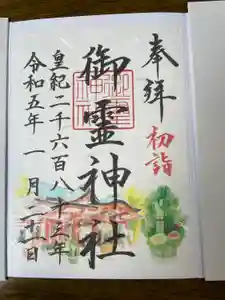 奉拝
初詣
御霊神社
皇紀二千六百八十三年
令和五年一月二日